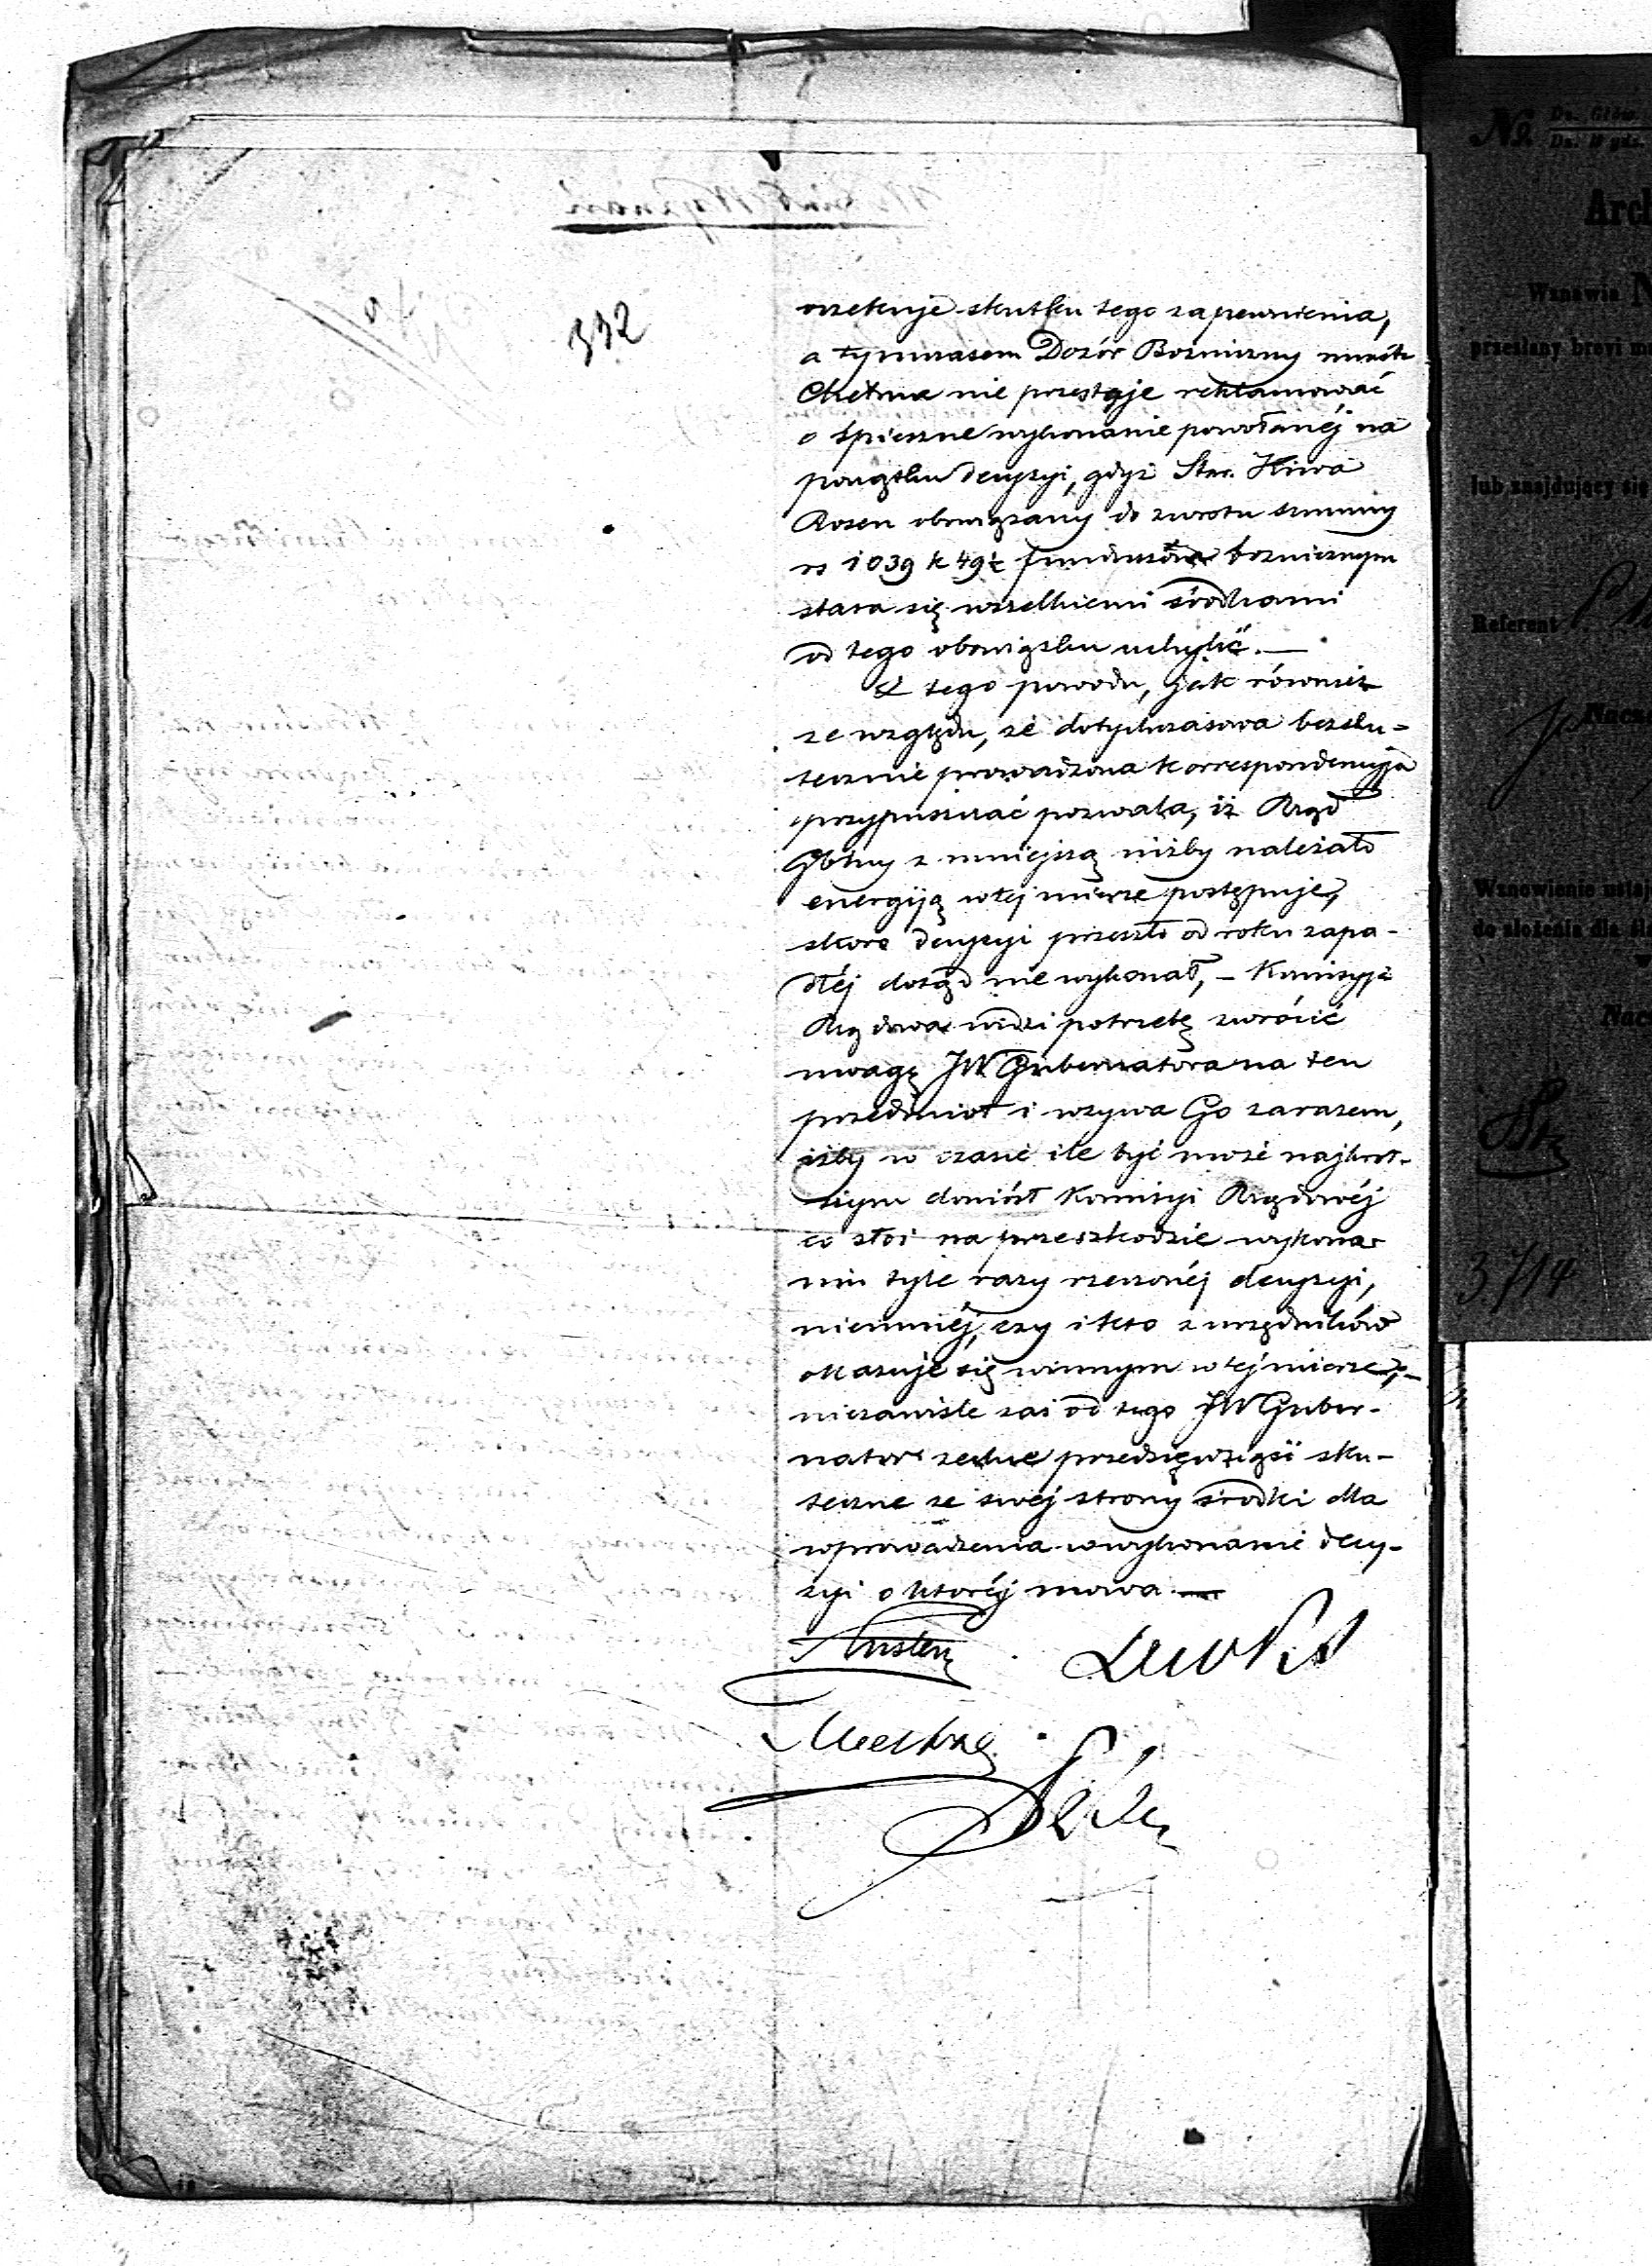 332
oczekuje skutku tego zapewnienia,
a tymczasem Dozór Bożniczny miasta
Chełma nie przestaje reklamować
o spieszne wykonanie powołanéj na
początku decyzyi, gdyż Star. Hiwa
Rozen obowiązany do zwrotu summy
rs 1039 k 49½ funduszów bożnicznym
stara się wszelkiemi środkami
od tego obowiązku uchylić. —
Z tego powodu, jak również
ze względu, że dotychczasowa bezsku-
tecznie prowadzona korrespondencyja
przypuszczać pozwala, iż Rząd
Gbny z mniejszą niżby należało
energiją w tej mierze postępuje,
skoro decyzyi przeszło od roku zapa-
dłéj dotąd nie wykonał, - Kommissyja
Rządowa widzi potrzebę zwrócić
uwagę JW Gubernatora na ten
przedmiot i wzywa Go zarazem,
iżby w czasie ile być może najkrót-
szym doniósł Kommisyi Rządowéj
co stoi na przeszkodzie wykona-
niu tyle razy rzeczonéj decyzyi,
niemniéj, czy i kto z urzędników
okazuje się winnym w tej mierze, -
niezawiśle zaś od tego JW Guber-
nator zechce przedsięwziąść sku-
teczne ze swéj strony środki dla
wprowadzenia w wykonanie decy-
zyi o któréj mowa. —
№ Dz. Głów.
Dz. Wydz.
Arch
Wznawia N
przesłany brevi ma
lub znajdujący się
Referent
Nacz
Wznowienie ustaj
do złożenia dla śla
Nacz
3714